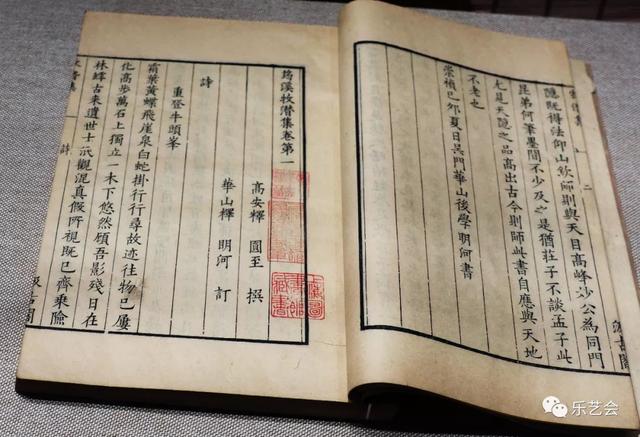 二
汲古閣
隱既得法仰山欽師則與天目高峰妙公為同門
昆弟何筆墨間不少及之是猶莊子不談孟子此
尤是天隱之品高出古今則師此書自應與天地
不老也
崇禎己卯夏日吳門華山後學明河書
筠溪牧潛集卷第一
高安釋 圓至 撰
華山釋 明河 訂
詩
重登牛頭峯
霜葉黃蝶飛崖泉白蛇掛行行尋故迹往物已屢
化高步萬石上獨立一木下悠然顧吾影殘日在
林罅古來遺世士汎觀混真假所視既已齊乘險
詩
汲古閣
上海圖書館藏書
乐艺会